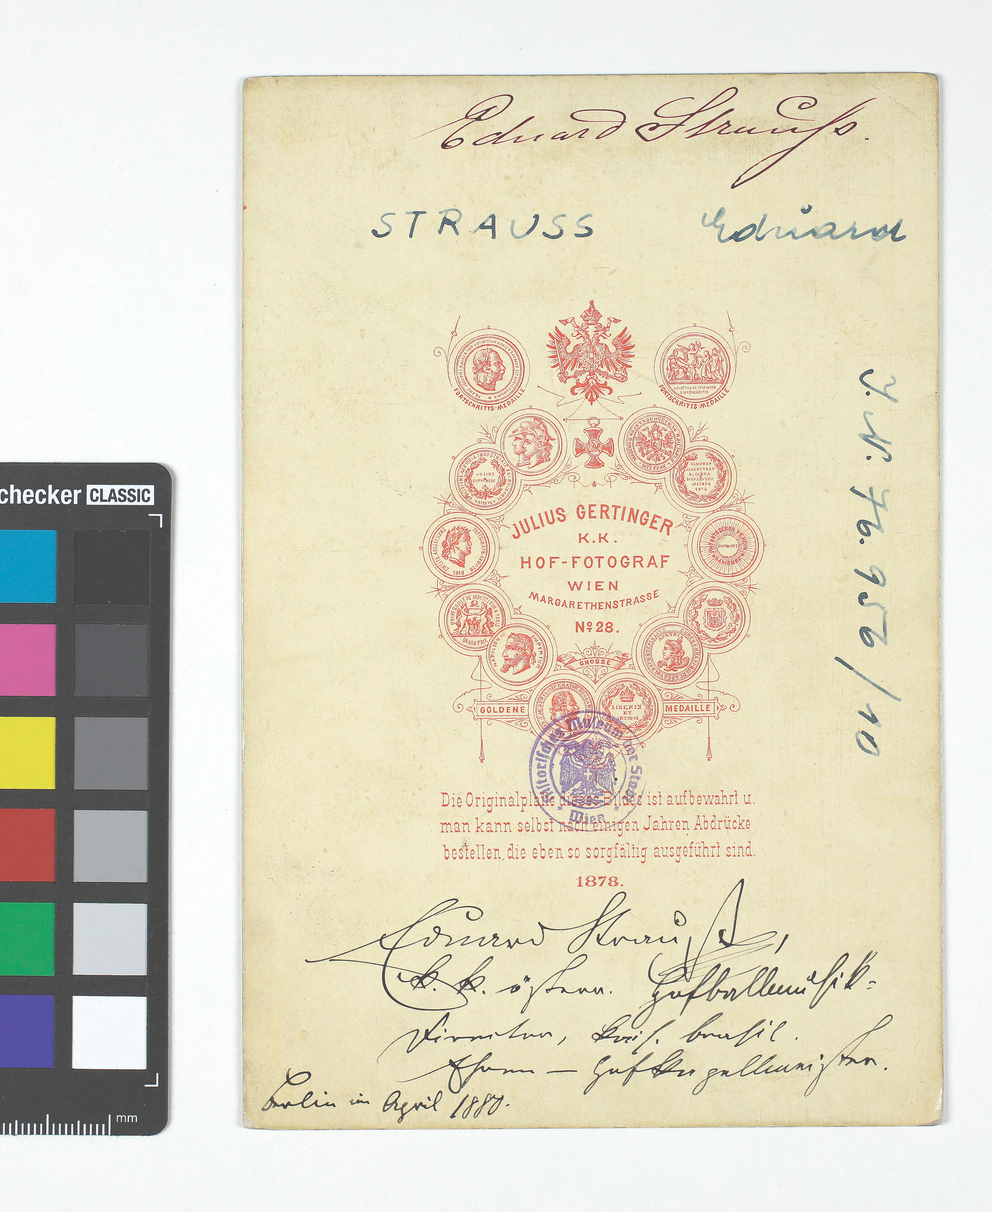 Eduard Strauss.
STRAUSS Eduard
J. N. 76.956/10
FORTSCHRITTS-MEDAILLE
FORTSCHRITTS-MEDAILLE
JULIUS GERTINGER
K.K.
HOF-FOTOGRAF
WIEN
MARGARETHENSTRASSE
No 28.
GROSSE
GOLDENE MEDAILLE
Historisches Museum der Stadt Wien
Die Originalplatte dieses Bildes ist aufbewahrt u.
man kann selbst nach einigen Jahren Abdrücke
bestellen, die eben so sorgfältig ausgeführt sind.
1878.
Eduard Strauß,
k. k. österr. Hofballmusik-
Director, kais. brasil.
Ehren-Hofkapellmeister.
Berlin im April
checker CLASSIC
mm